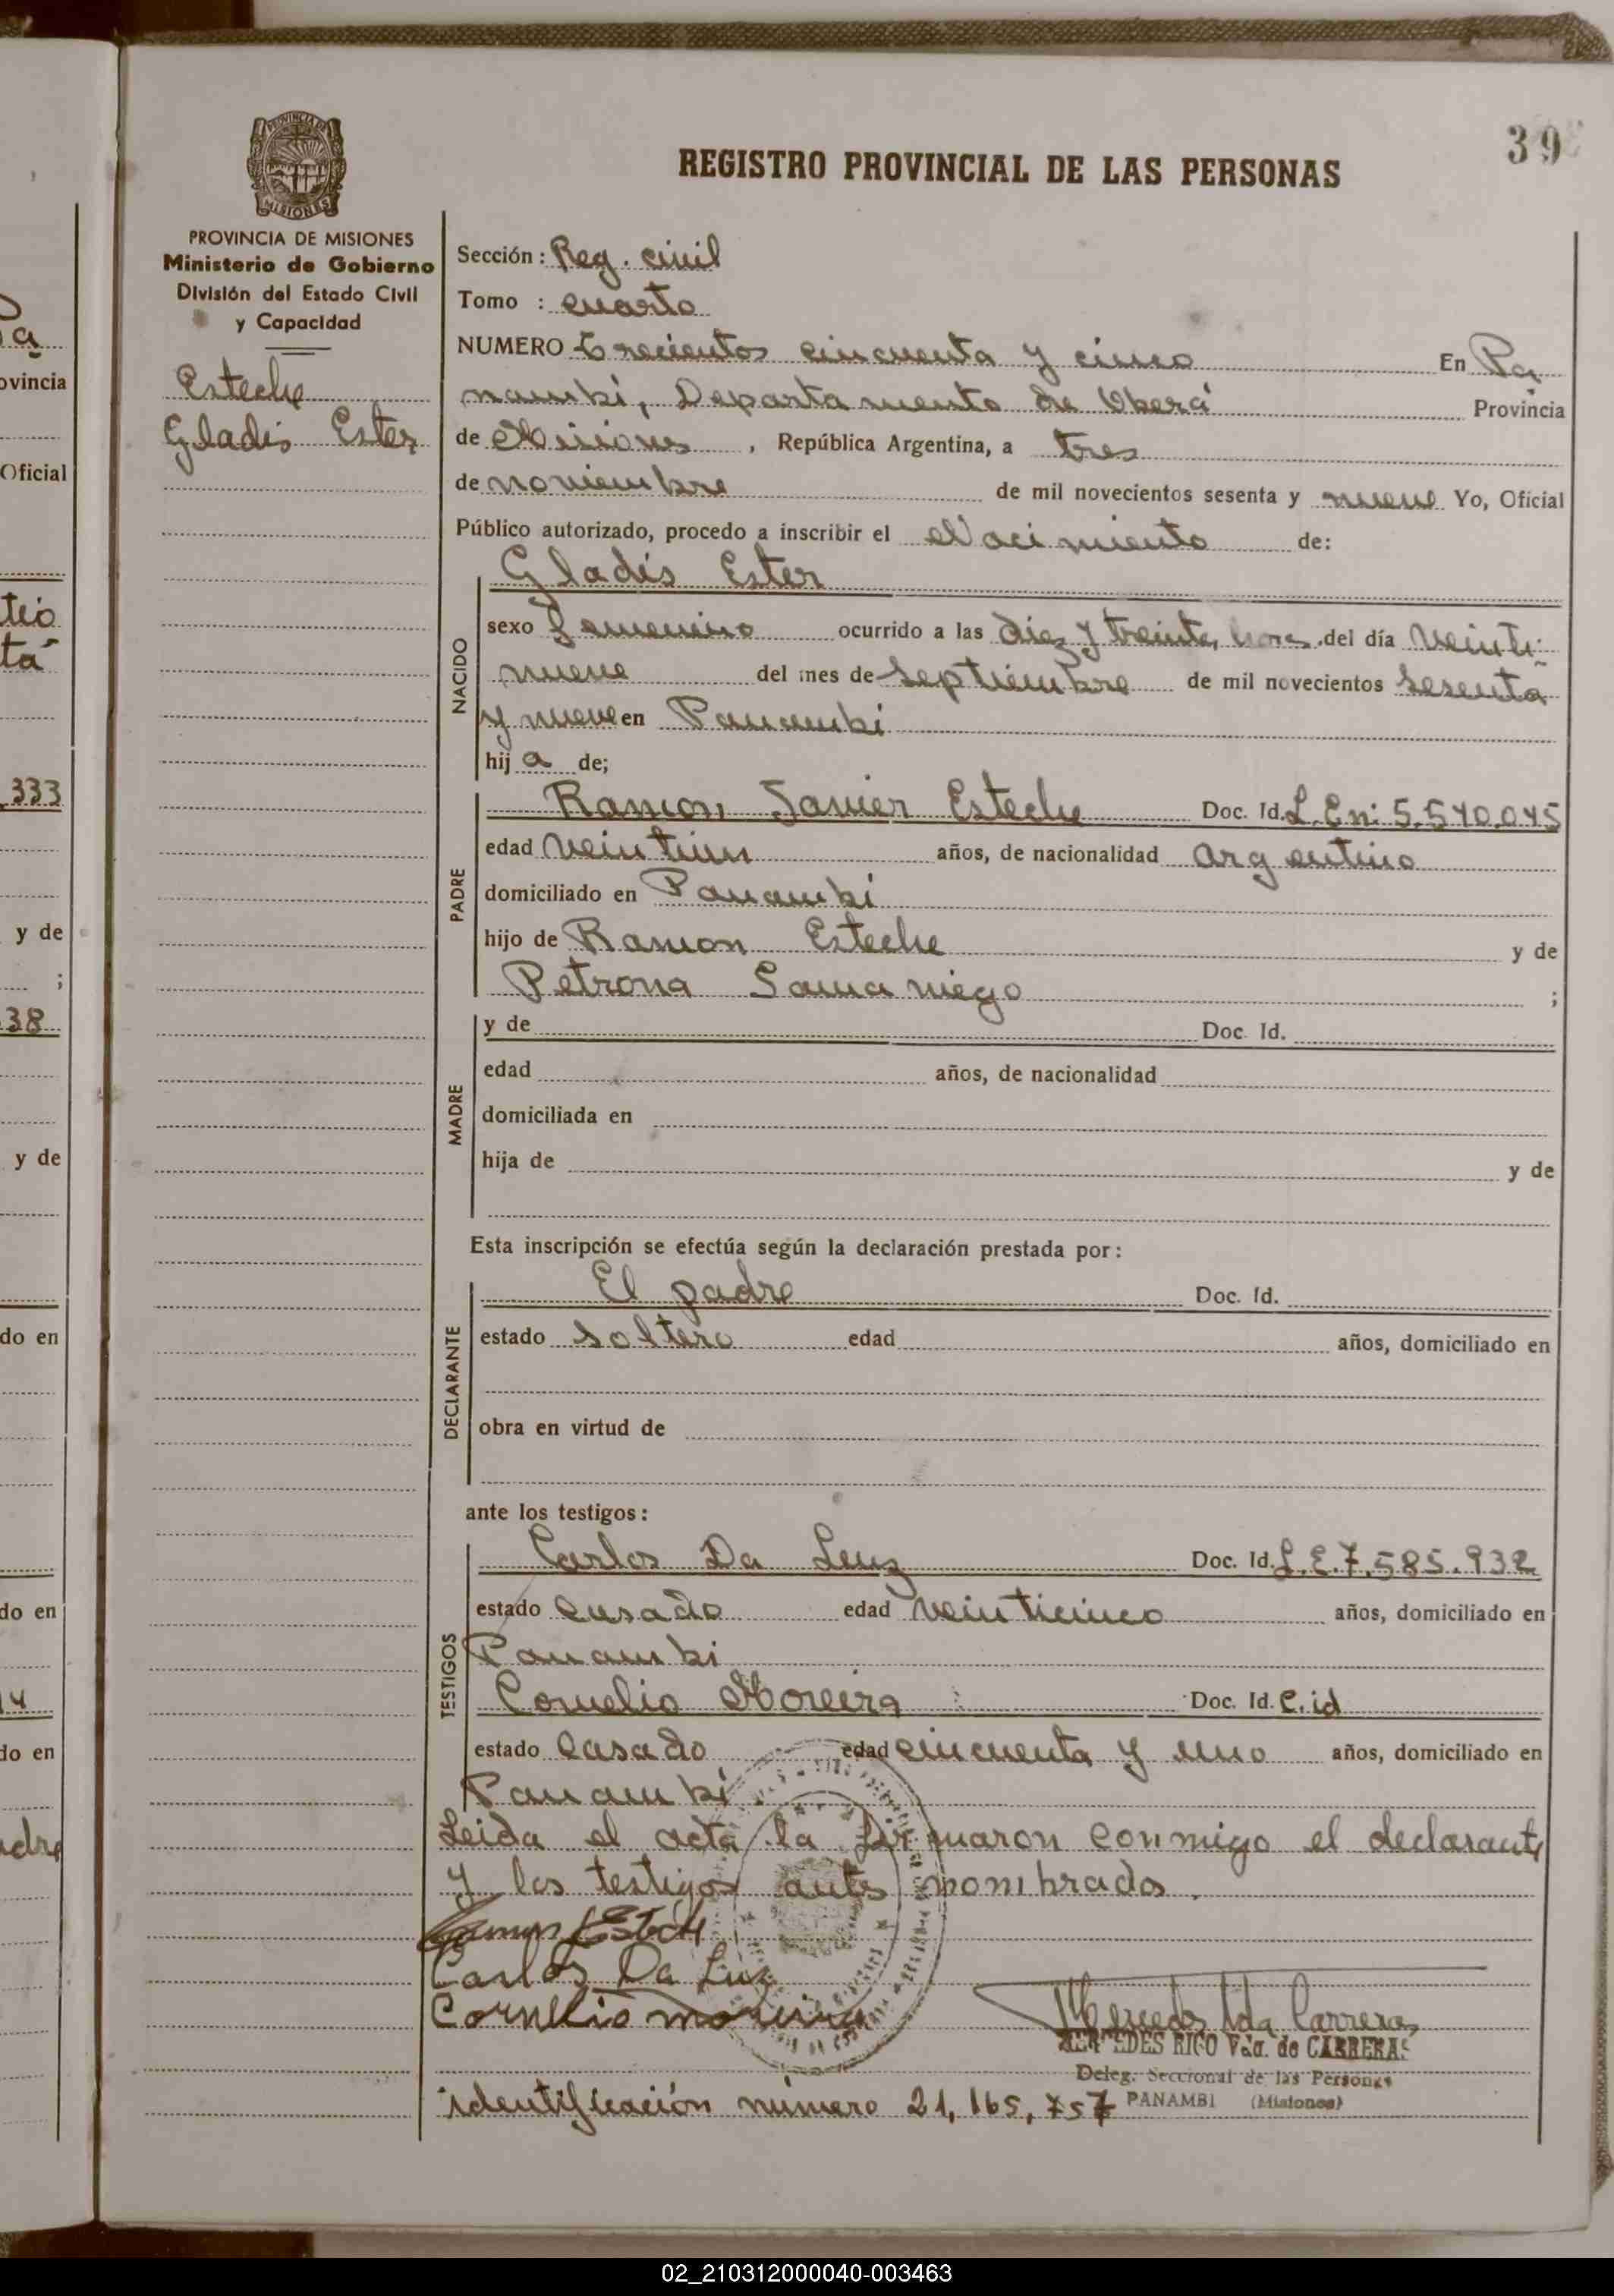 39
REGISTRO PROVINCIAL DE LAS PERSONAS
PROVINCIA DE
MISIONES
PROVINCIA DE MISIONES
Ministerio de Gobierno
División del Estado Civil
y Capacidad
Esteche
Gladis Ester
Sección: Reg. civil
Tomo : cuarto
NUMERO Trecientos cincuenta y cinco En Pa
nambí, Departamento de Oberá Provincia
de Misiones, República Argentina, a tres
de noviembre de mil novecientos sesenta y nueve Yo, Oficial
Público autorizado, procedo a inscribir el Nacimiento de:
Gladis Ester
NACIDO
sexo femenino ocurrido a las diez y treinta horas del día veinti
nueve del mes de septiembre de mil novecientos sesenta
y nueve en Panambí
hij a de;
PADRE
Ramon Javier Esteche Doc. Id. L. En: 5.540.045
edad veintiun años, de nacionalidad argentino
domiciliado en Panambí
hijo de Ramon Esteche y de
Petrona Samaniego ;
MADRE
y de Doc. Id.
edad años, de nacionalidad
domiciliada en
hija de y de
Esta inscripción se efectúa según la declaración prestada por:
DECLARANTE
El padre Doc. Id.
estado soltero edad años, domiciliado en
obra en virtud de
ante los testigos:
TESTIGOS
Carlos Da Luz Doc. Id. L.E. 7.585.932
estado casado edad veinticinco años, domiciliado en
Panambi
Cornelio Moreira Doc. Id. C. id
estado casado edad cincuenta y uno años, domiciliado en
Panambí.
Leida el acta la firmaron conmigo el declarante
y los testigos antes nombrados.
Carlos Da Luz
Cornelio moreira
Mercedes Carrera
MERCEDES RICO Vda. de CARRERA
Deleg. Seccional de las Personas
PANAMBI (Misiones)
identificación número 21,165,757
ovincia
Oficial
333
y de
;
38
y de
do en
do en
do en
02_210312000040-003463